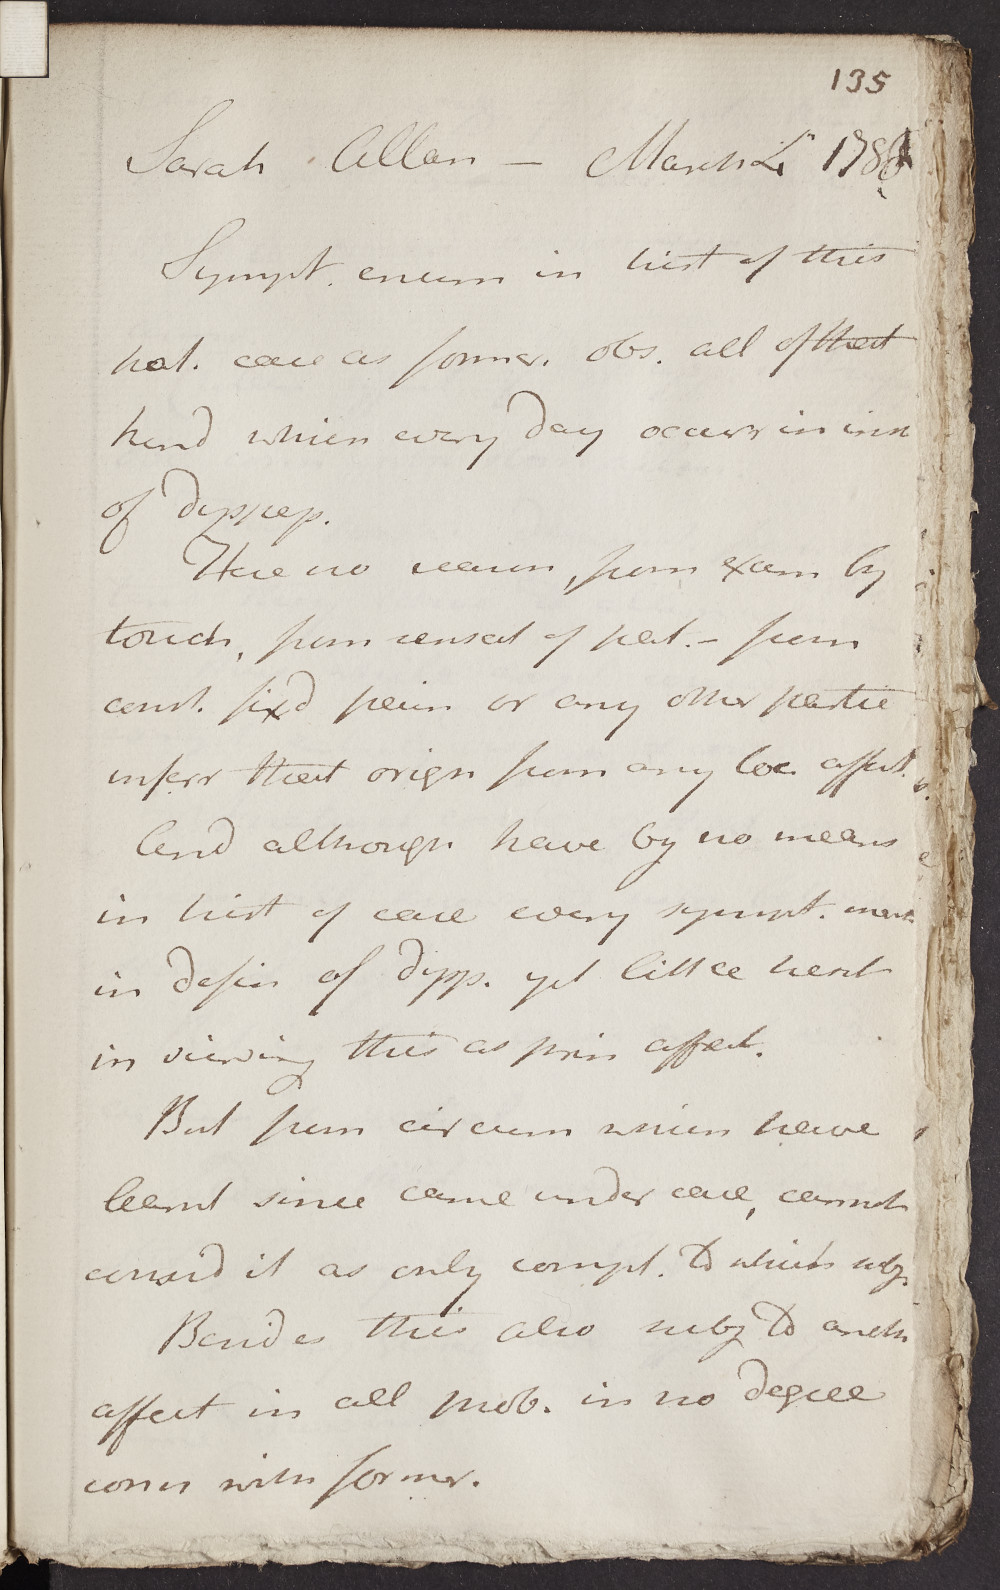 135
Sarah Allan — March 178
Sympt. enum in hist of this
pat. case as former. obs. all of that
kind which every day occurr in inst
of dyspep.
Have no reason, from exam by
touch, from sensat of pat. - from
const. fixd pain or any other partic
inferr that origin from any loc affect.
And although have by no means
in hist of case every sympt. ment
in defin of dysp. yet little hesit
in viewing this as prin affect.
But from circum which have
learnt since came under care, cannot
consid it as only compl. to which subj.
Besides this also subj to anoth
affect in all prob. in no degree
conn with former.